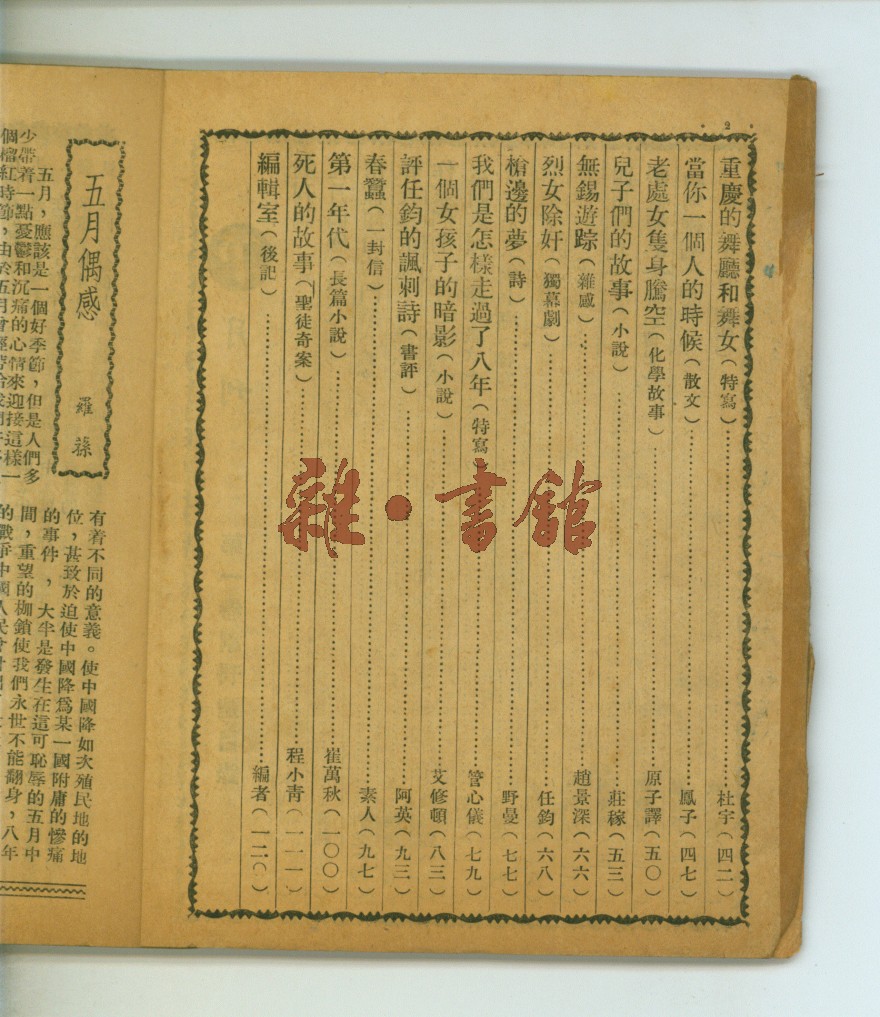 2
重慶的舞廳和舞女（特寫）……杜宇（四二）
當你一個人的時候（散文）……鳳子（四七）
老處女隻身騰空（化學故事）……原子譯（五〇）
兒子們的故事（小說）……莊稼（五三）
無錫遊踪（雜感）……趙景深（六六）
烈女除奸（獨幕劇）……任鈞（六八）
槍邊的夢（詩）……野曼（七七）
我們是怎樣走過了八年（特寫……管心儀（七九）
一個女孩子的暗影（小說）……艾修頓（八三）
評任鈞的諷刺詩（書評）……阿英（九三）
春蠶（一封信）……素人（九七）
第一年代（長篇小說）……崔萬秋（一〇〇）
死人的故事（聖徒奇案）……程小靑（一一一）
編輯室（後記）……編者（一二〇）
雜·書館
五月偶感
羅蓀
五月，應該是一個好季節，但是人們多
少帶着一點憂鬱和沉痛的心情來迎接這樣一
個榴紅時節，由於五月會
有着不同的意義。使中國降如次殖民地的地
位，甚致於迫使中國降爲某一國附庸的慘痛
的事件，大半是發生在這可恥辱的五月中
間，重望的枷鎖使我們永世不能翻身，八年
的戰爭中國人民